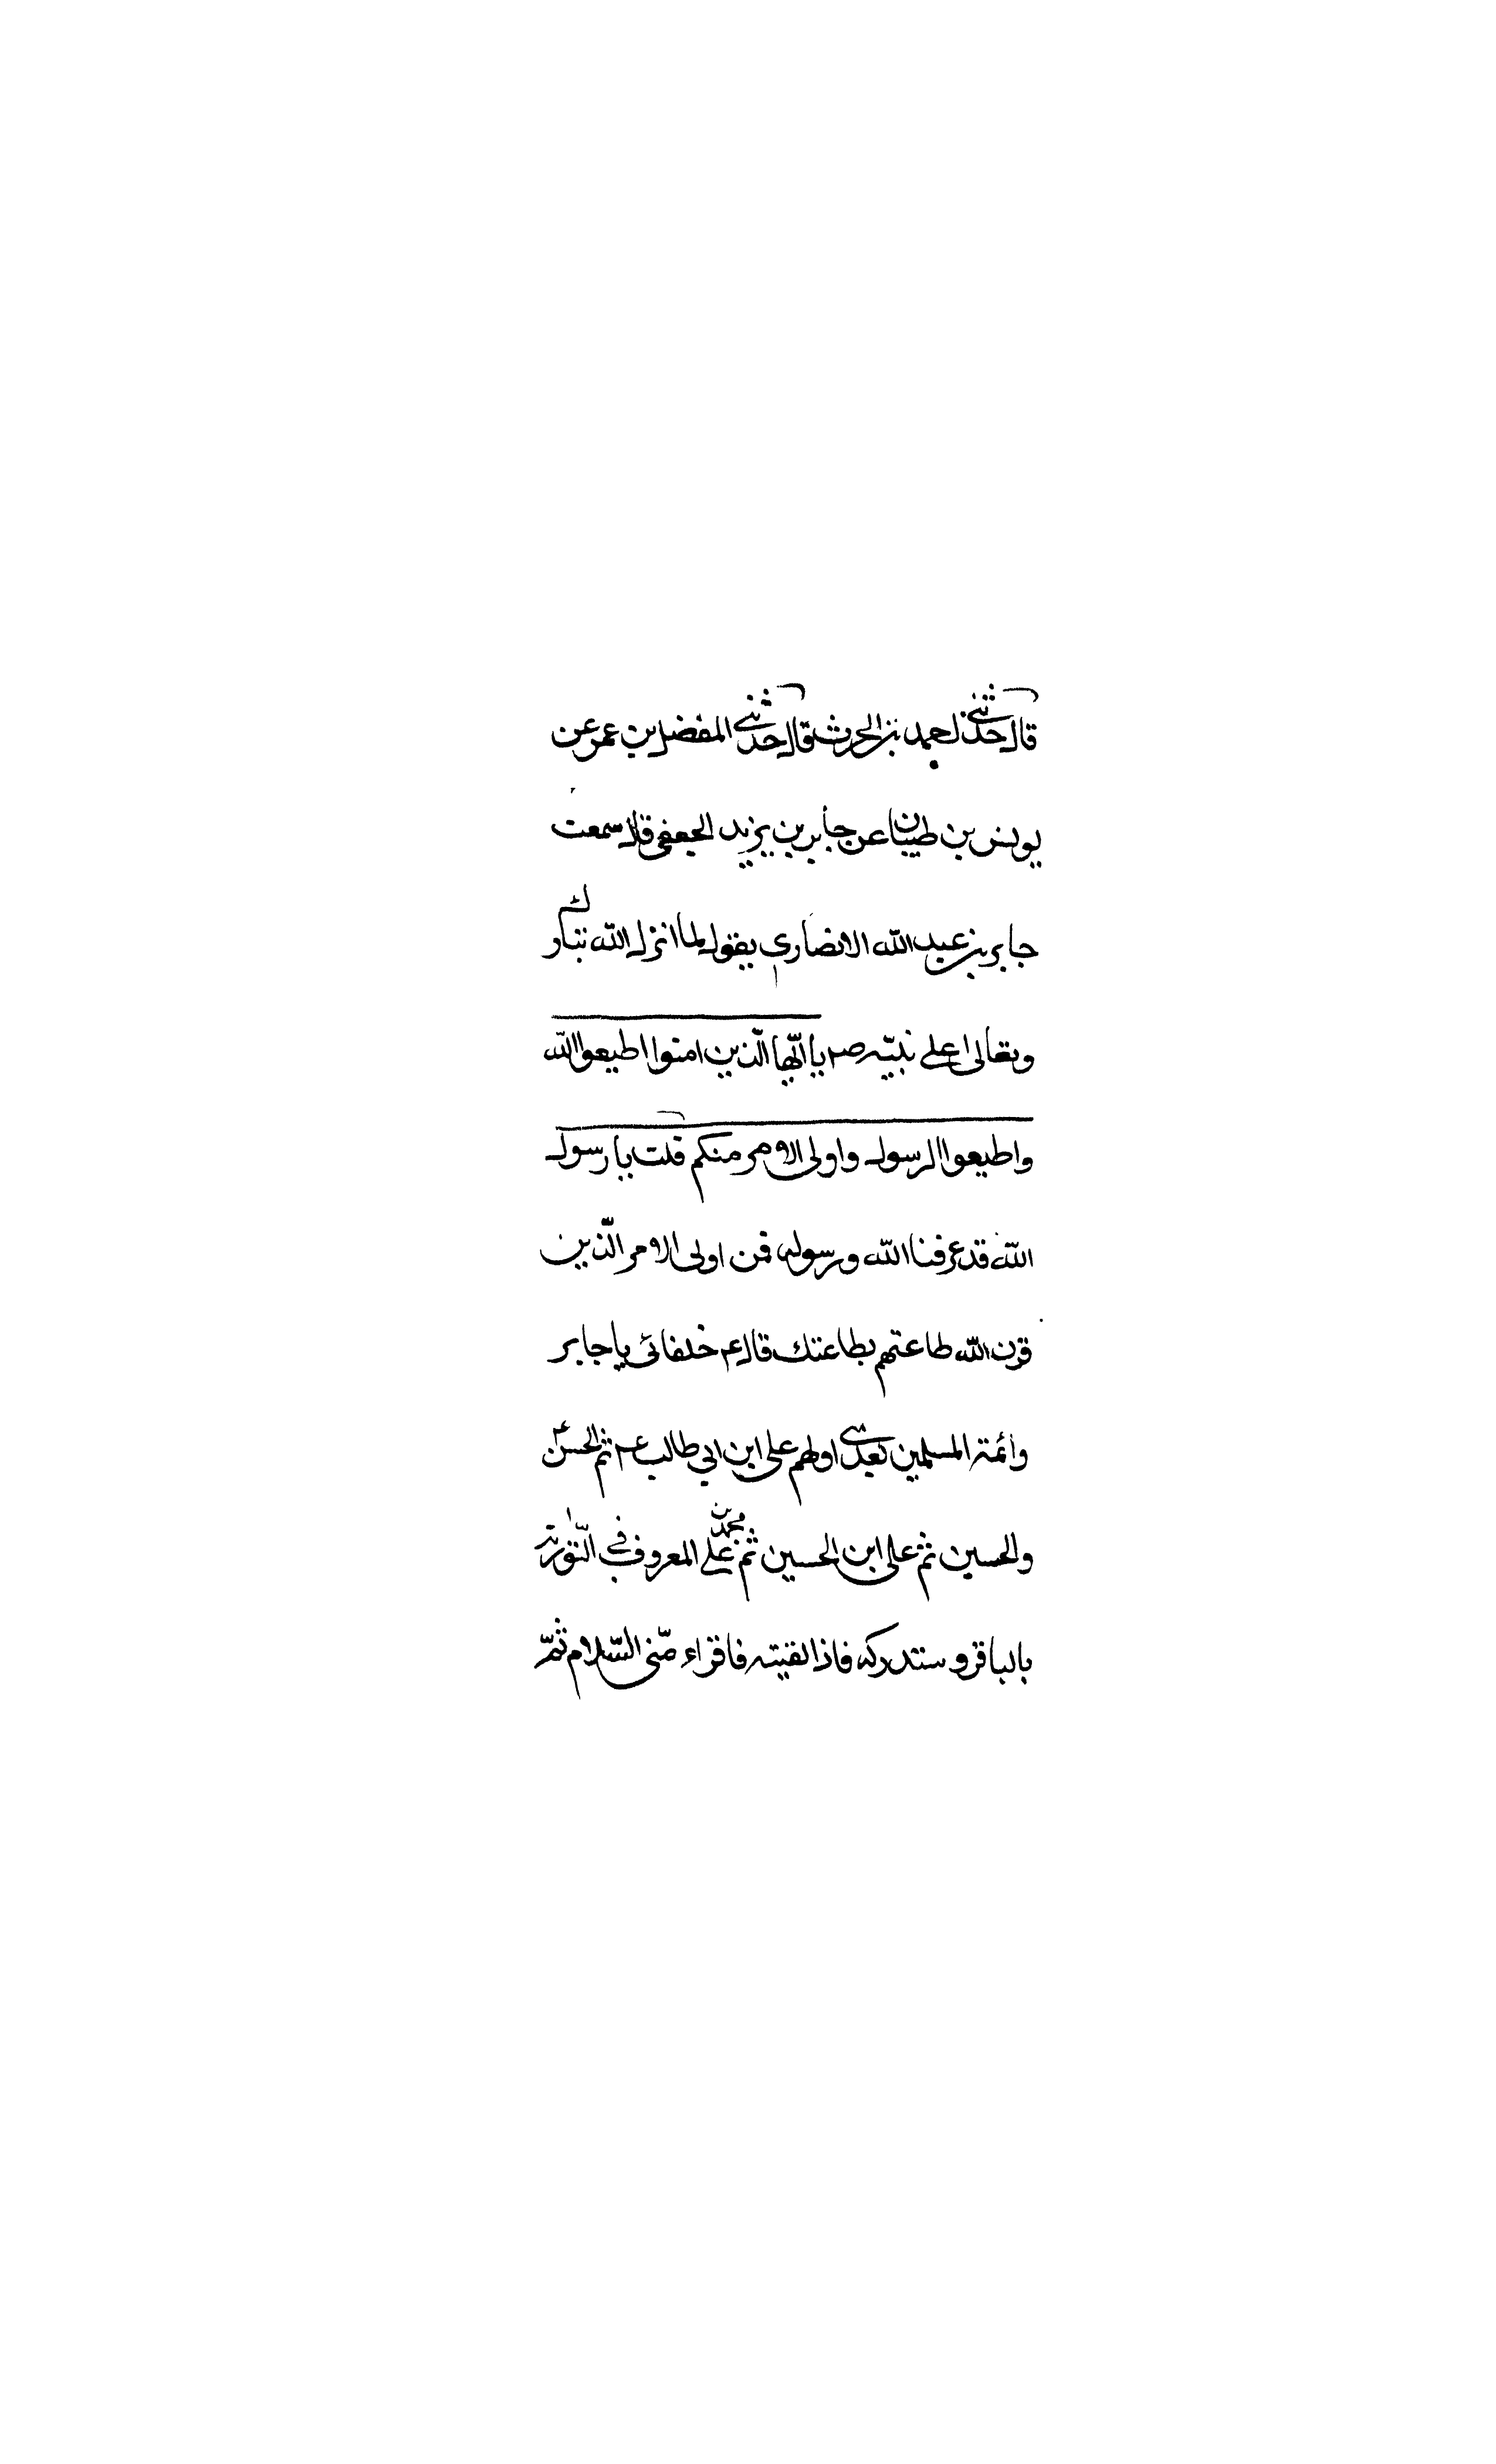 قال حدثني احمد بن الحرث قال حدثني المفضل بن عمر عن
يونس بن ظبيان عن جابر بن يزيد الجعفي قال سمعت
جابر بن عبد الله الانصاري يقول لما انزل الله تبارك
وتعالى على نبيّه ص يا ايّها الّذين امنوا اطيعوا الله
واطيعوا الرسول واولى الامر منكم قلت يا رسول
الله قد عرفنا الله ورسوله فمن اولى الامر الّذين
قرن الله طاعتهم بطاعتك قال ع خلفائي يا جابر
وائمة المسلمين بعدى اولهم على ابن ابي طالب ع ثم الحسن
والحسين ثم على ابن الحسين ثم محمّد بن على المعروف في التّورية
بالباقر وستدركه فاذا لقيته فاقراء منّي السّلام ثمّ